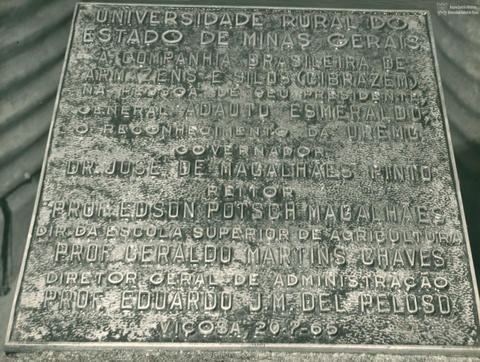 UNIVERSIDADE RURAL DO
ESTADO DE MINAS GERAIS
A COMPANHIA BRASILEIRA DE
ARMAZENS E SILOS (CIBRAZEM)
NA PESSOA DE SEU PRESIDENTE
GENERAL ADAUTO ESMERALDO
O RECONHECIMENTO DA UREMG
GOVERNADOR
DR. JOSÉ DE MAGALHÃES PINTO
REITOR
PROF. EDSON POTSCH MAGALHÃES
DIR. DA ESCOLA SUPERIOR DE AGRICULTURA
PROF. GERALDO MARTINS CHAVES
DIRETOR GERAL DE ADMINISTRAÇÃO
PROF. EDUARDO J. M. DEL PELOSO
VIÇOSA 20-7-65